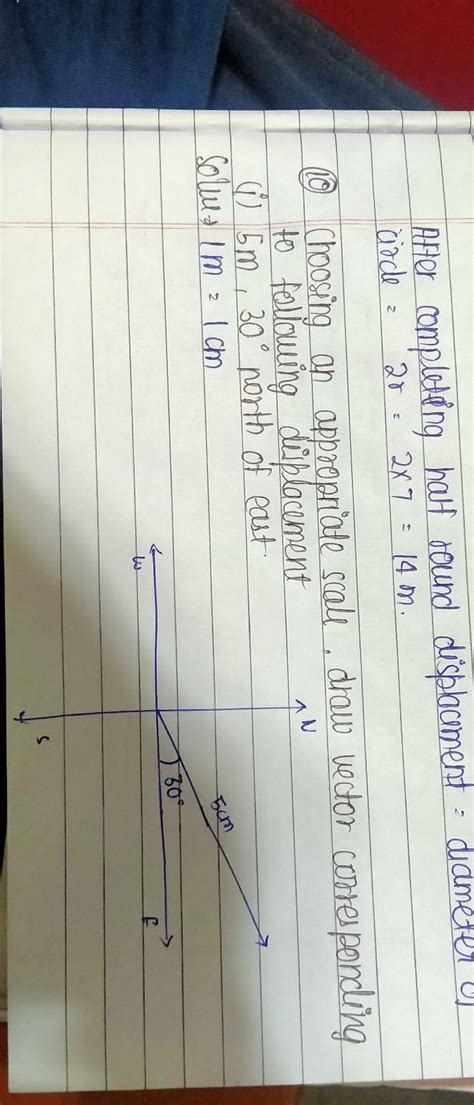 After completing half round displacement = diameter of
circle = 2r = 2x7 = 14 m.
(10) Choosing an appropriate scale, draw vector corresponding
to following displacement
(i) 5m, 30° north of east
Solu → 1m = 1cm
N
5cm
30°
W
E
S